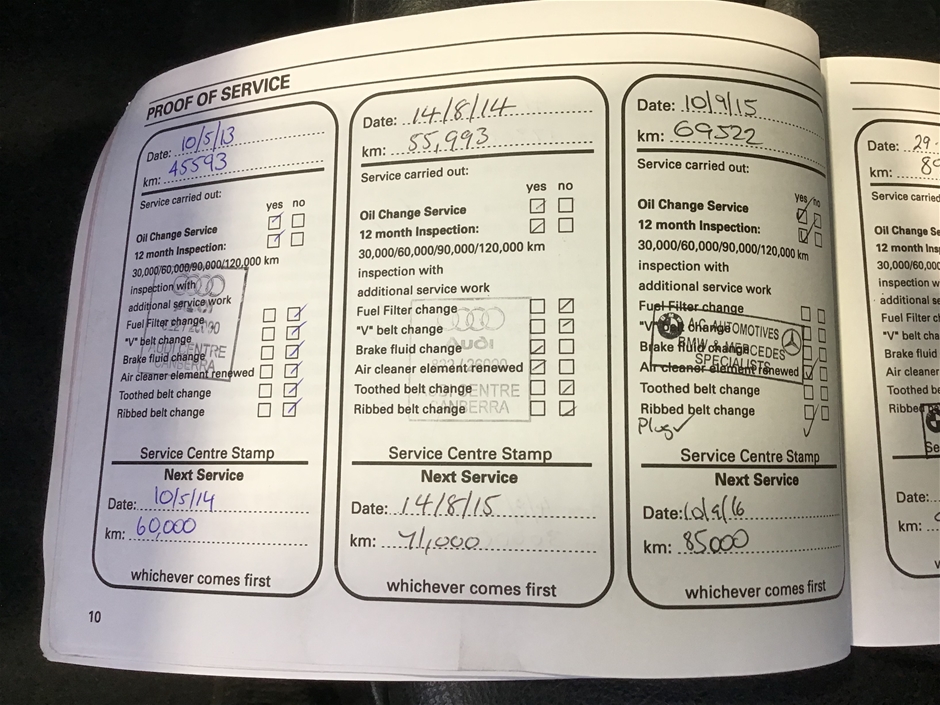 PROOF OF SERVICE
Date: 10/5/13
km: 45593
Service carried out:
yes no
Oil Change Service
12 month Inspection:
30,000/60,000/90,000/120,000 km
inspection with
additional service work
Fuel Filter change
"V" belt change
Brake fluid change
Air cleaner element renewed
Toothed belt change
Ribbed belt change
AUDI CENTRE
CANBERRA
Service Centre Stamp
Next Service
Date: 10/5/14
km: 60,000
whichever comes first
10
Date: 14/8/14
km: 55,993
Service carried out:
yes no
Oil Change Service
12 month Inspection:
30,000/60,000/90,000/120,000 km
inspection with
additional service work
Fuel Filter change
"V" belt change
Brake fluid change
Air cleaner element renewed
Toothed belt change
Ribbed belt change
Audi
AUDI CENTRE
CANBERRA
Service Centre Stamp
Next Service
Date: 14/8/15
km: 71,000
whichever comes first
Date: 10/9/15
km: 69522
Service carried out:
yes no
Oil Change Service
12 month Inspection:
30,000/60,000/90,000/120,000 km
inspection with
additional service work
Fuel Filter change
"V" belt change
Brake fluid change
Air cleaner element renewed
Toothed belt change
Ribbed belt change
A.C. AUTOMOTIVES
BMW & MERCEDES
SPECIALISTS
Service Centre Stamp
Next Service
Date: 10/9/16
km: 85000
whichever comes first
Date: 29
km:
Service carried
Oil Change Se
12 month Ins
30,000/60,00
inspection
additional se
Fuel Filter c
"V" belt cha
Brake fluid
Air cleaner
Toothed be
Ribbed
Se
Date:
km: